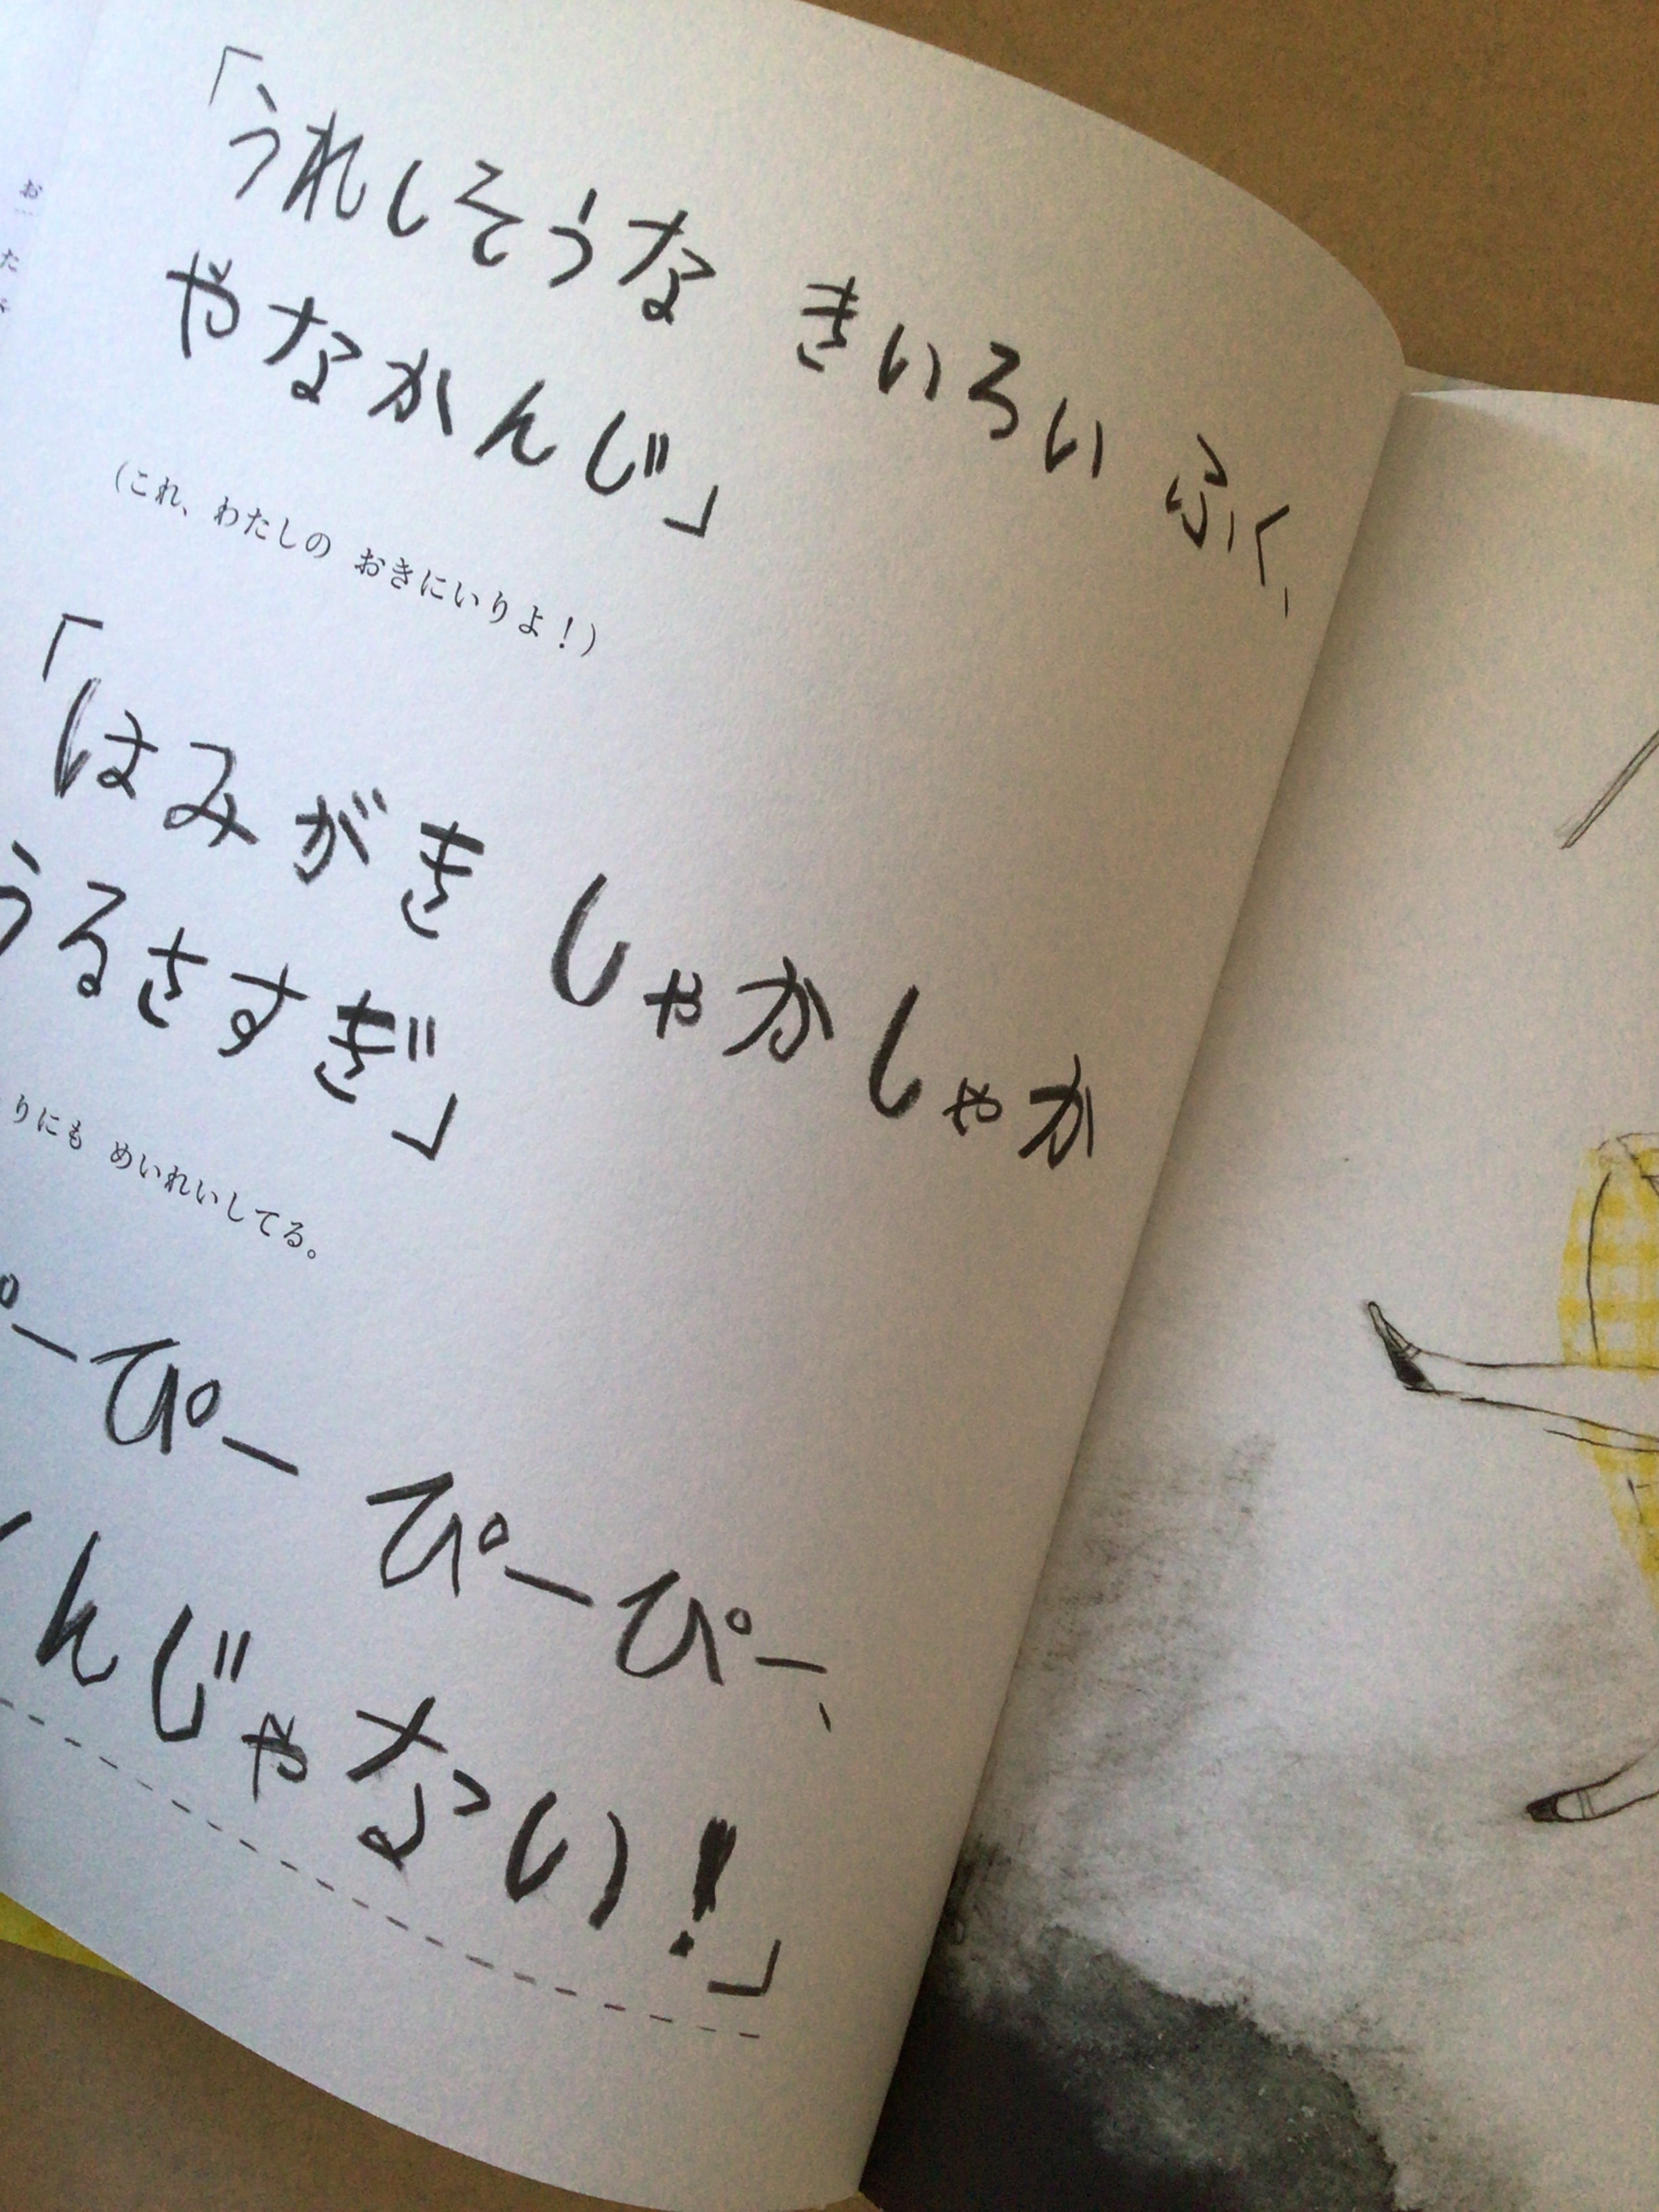 「うれしそうな きいろい ふく、
やなかんじ」
(これ、わたしの おきにいりよ!)
「はみがき しゃかしゃか
うるさすぎ」
りにも めいれいしてる。
ーぴー ぴーぴー、
んじゃない!」